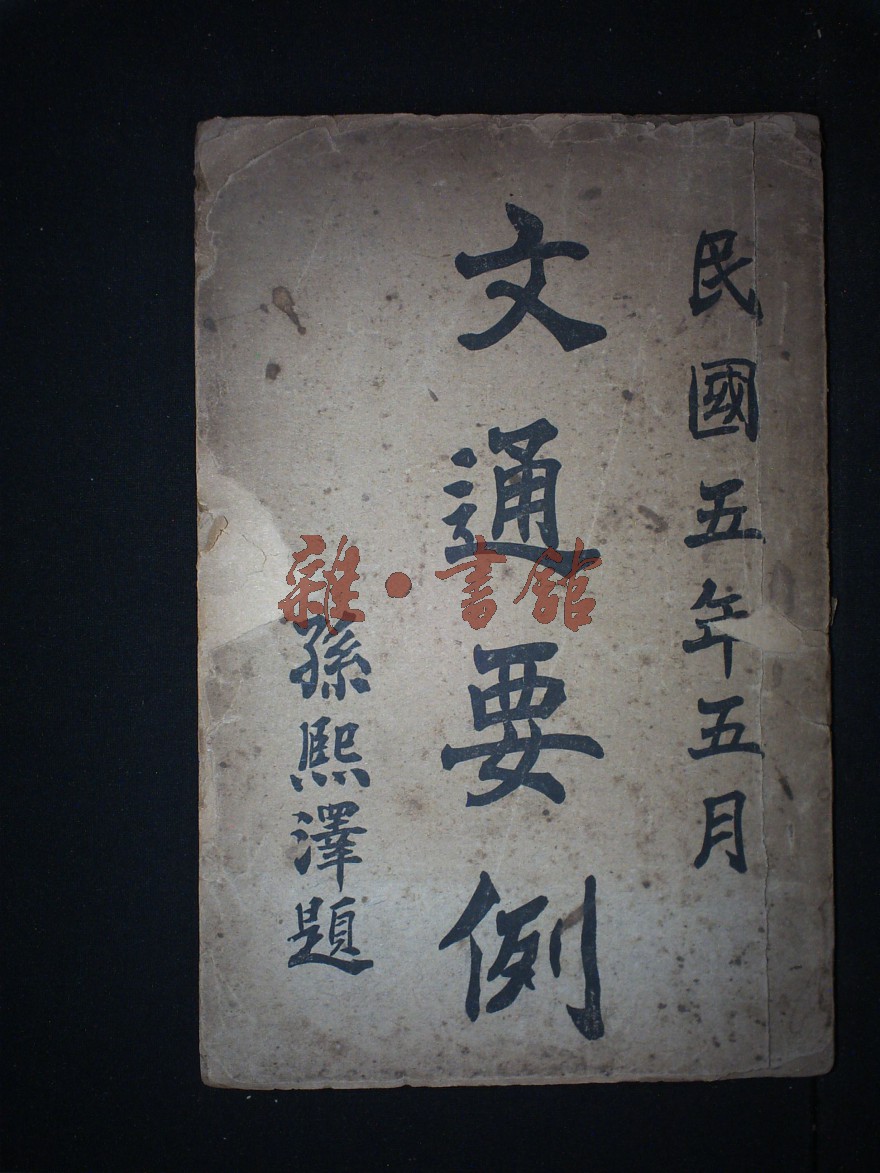 民國五年五月
文通要例
孫熙澤題
雜·書館